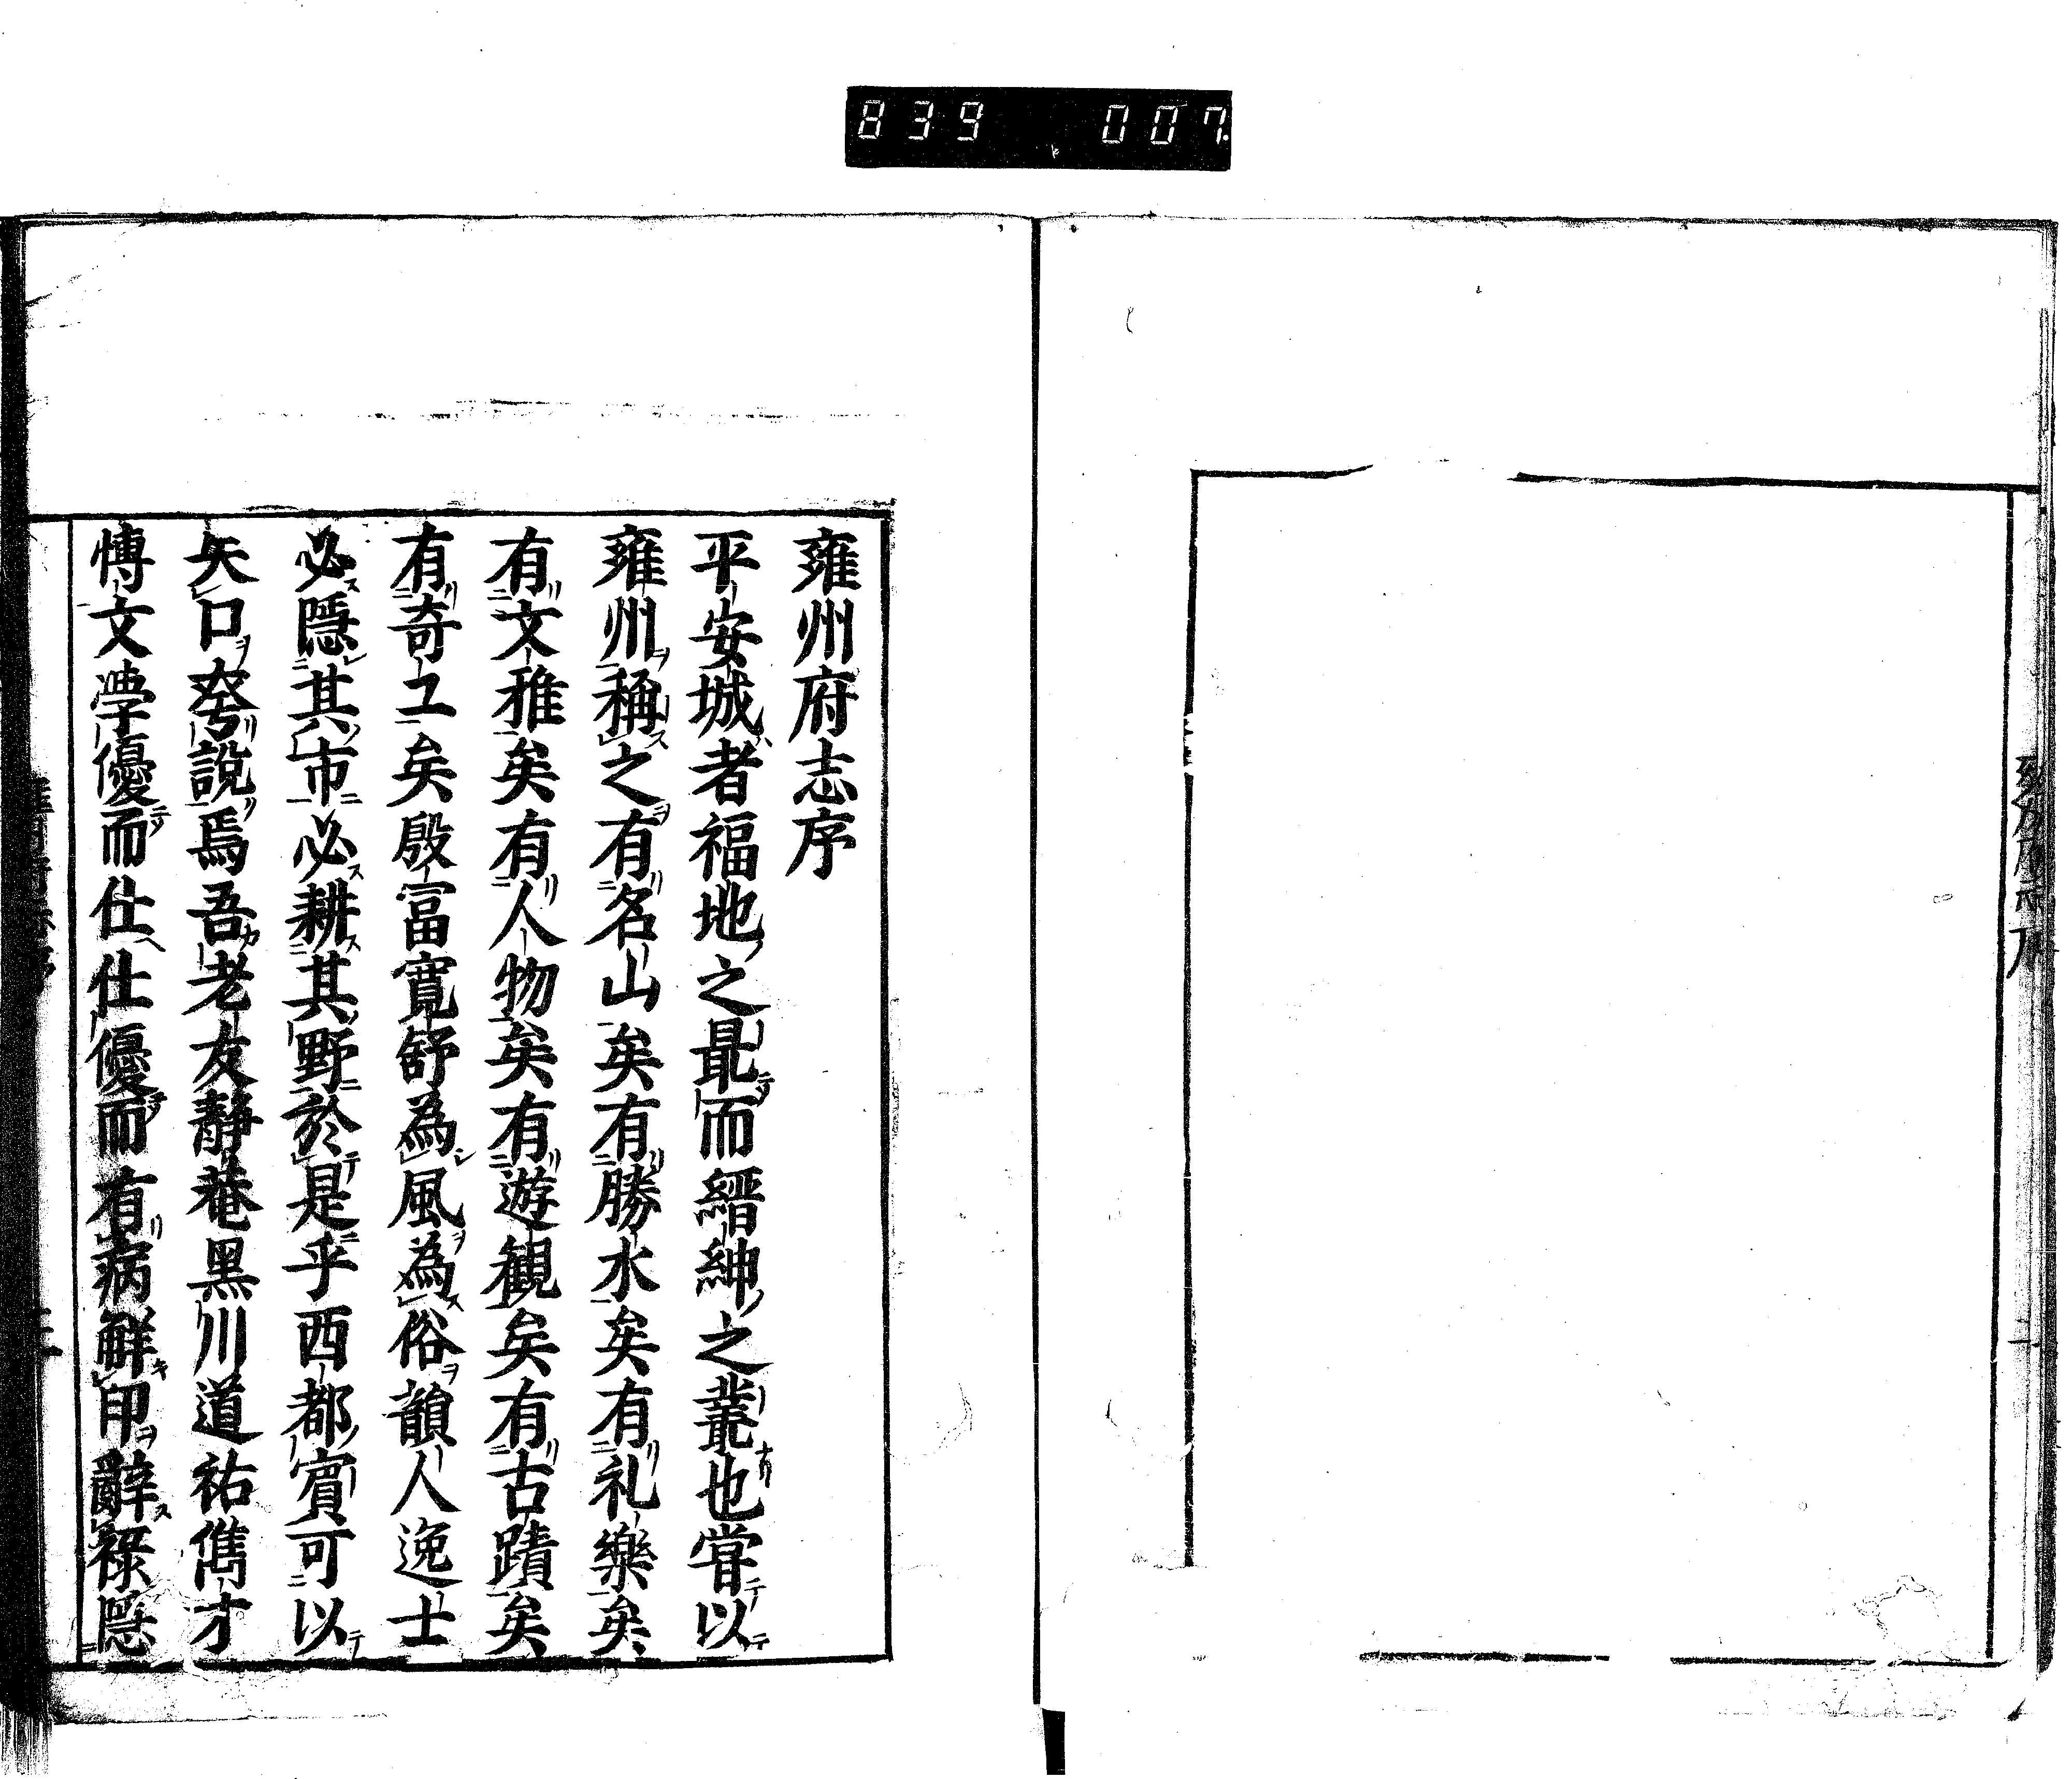 839 007
雍州府志序
平安城者福地之最而縉紳之叢也甞以
雍州稱之有名山矣有勝水矣有礼樂矣
有文雅矣有人物矣有遊観矣有古蹟矣
有奇工矣殷冨寛舒為風為俗韻人逸士
必隠其市必耕其野於是乎西都賓可以
矢口発説焉吾老友静菴黒川道祐儁才
愽文学優而仕仕優而有病解印辭禄隠